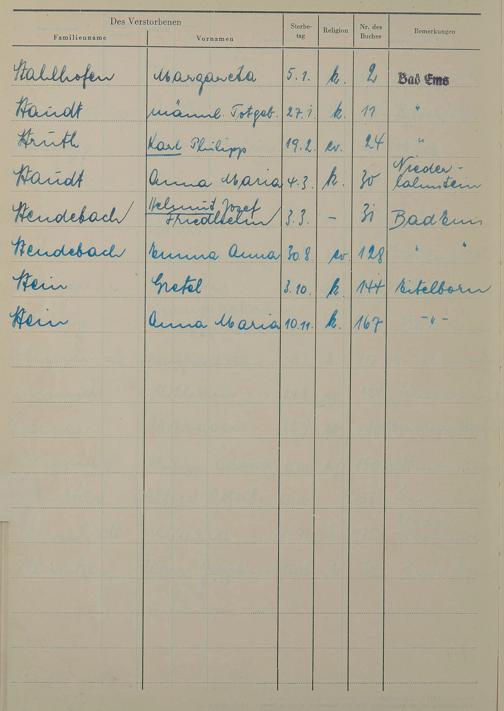 Des Verstorbenen
Familienname Vornamen Sterbe-tag Religion Nr. des Buches Bemerkungen
Stahlhofen Margareta 5.1. k. 2 Bad Ems
Staudt männl. Totgeb. 27.1. k. 11 "
Struth Karl Philipp 19.2. ev. 24 "
Staudt Anna Maria 4.3. k. 30 Nieder-lahnstein
Stendebach Helmut Josef Friedhelm 3.3. - 31 Bad Ems
Stendebach Emma Anna 30.8 ev 128 " "
Stein Gretel 3.10. k. 144 Eitelborn
Stein Anna Maria 10.11. k. 167 -"-